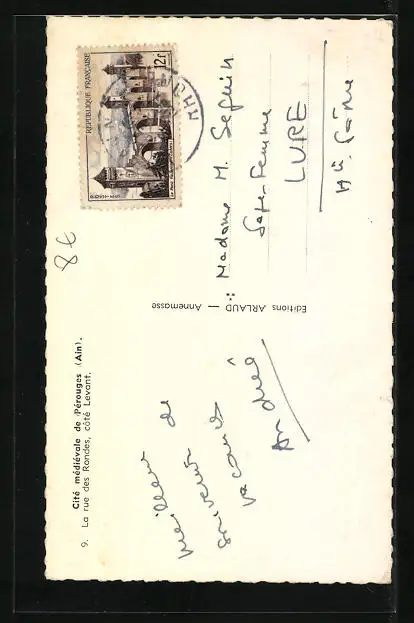 Cité médiévale de Pérouges (Ain).
9. La rue des Rondes, côté Levant.
8€
Meilleur de
souvenir
vacances
Andrée
Editions ARLAUD — Annemasse
REPUBLIQUE FRANÇAISE
12f
Madame M. Seguin
Sage-Femme
LURE
Hte Saône